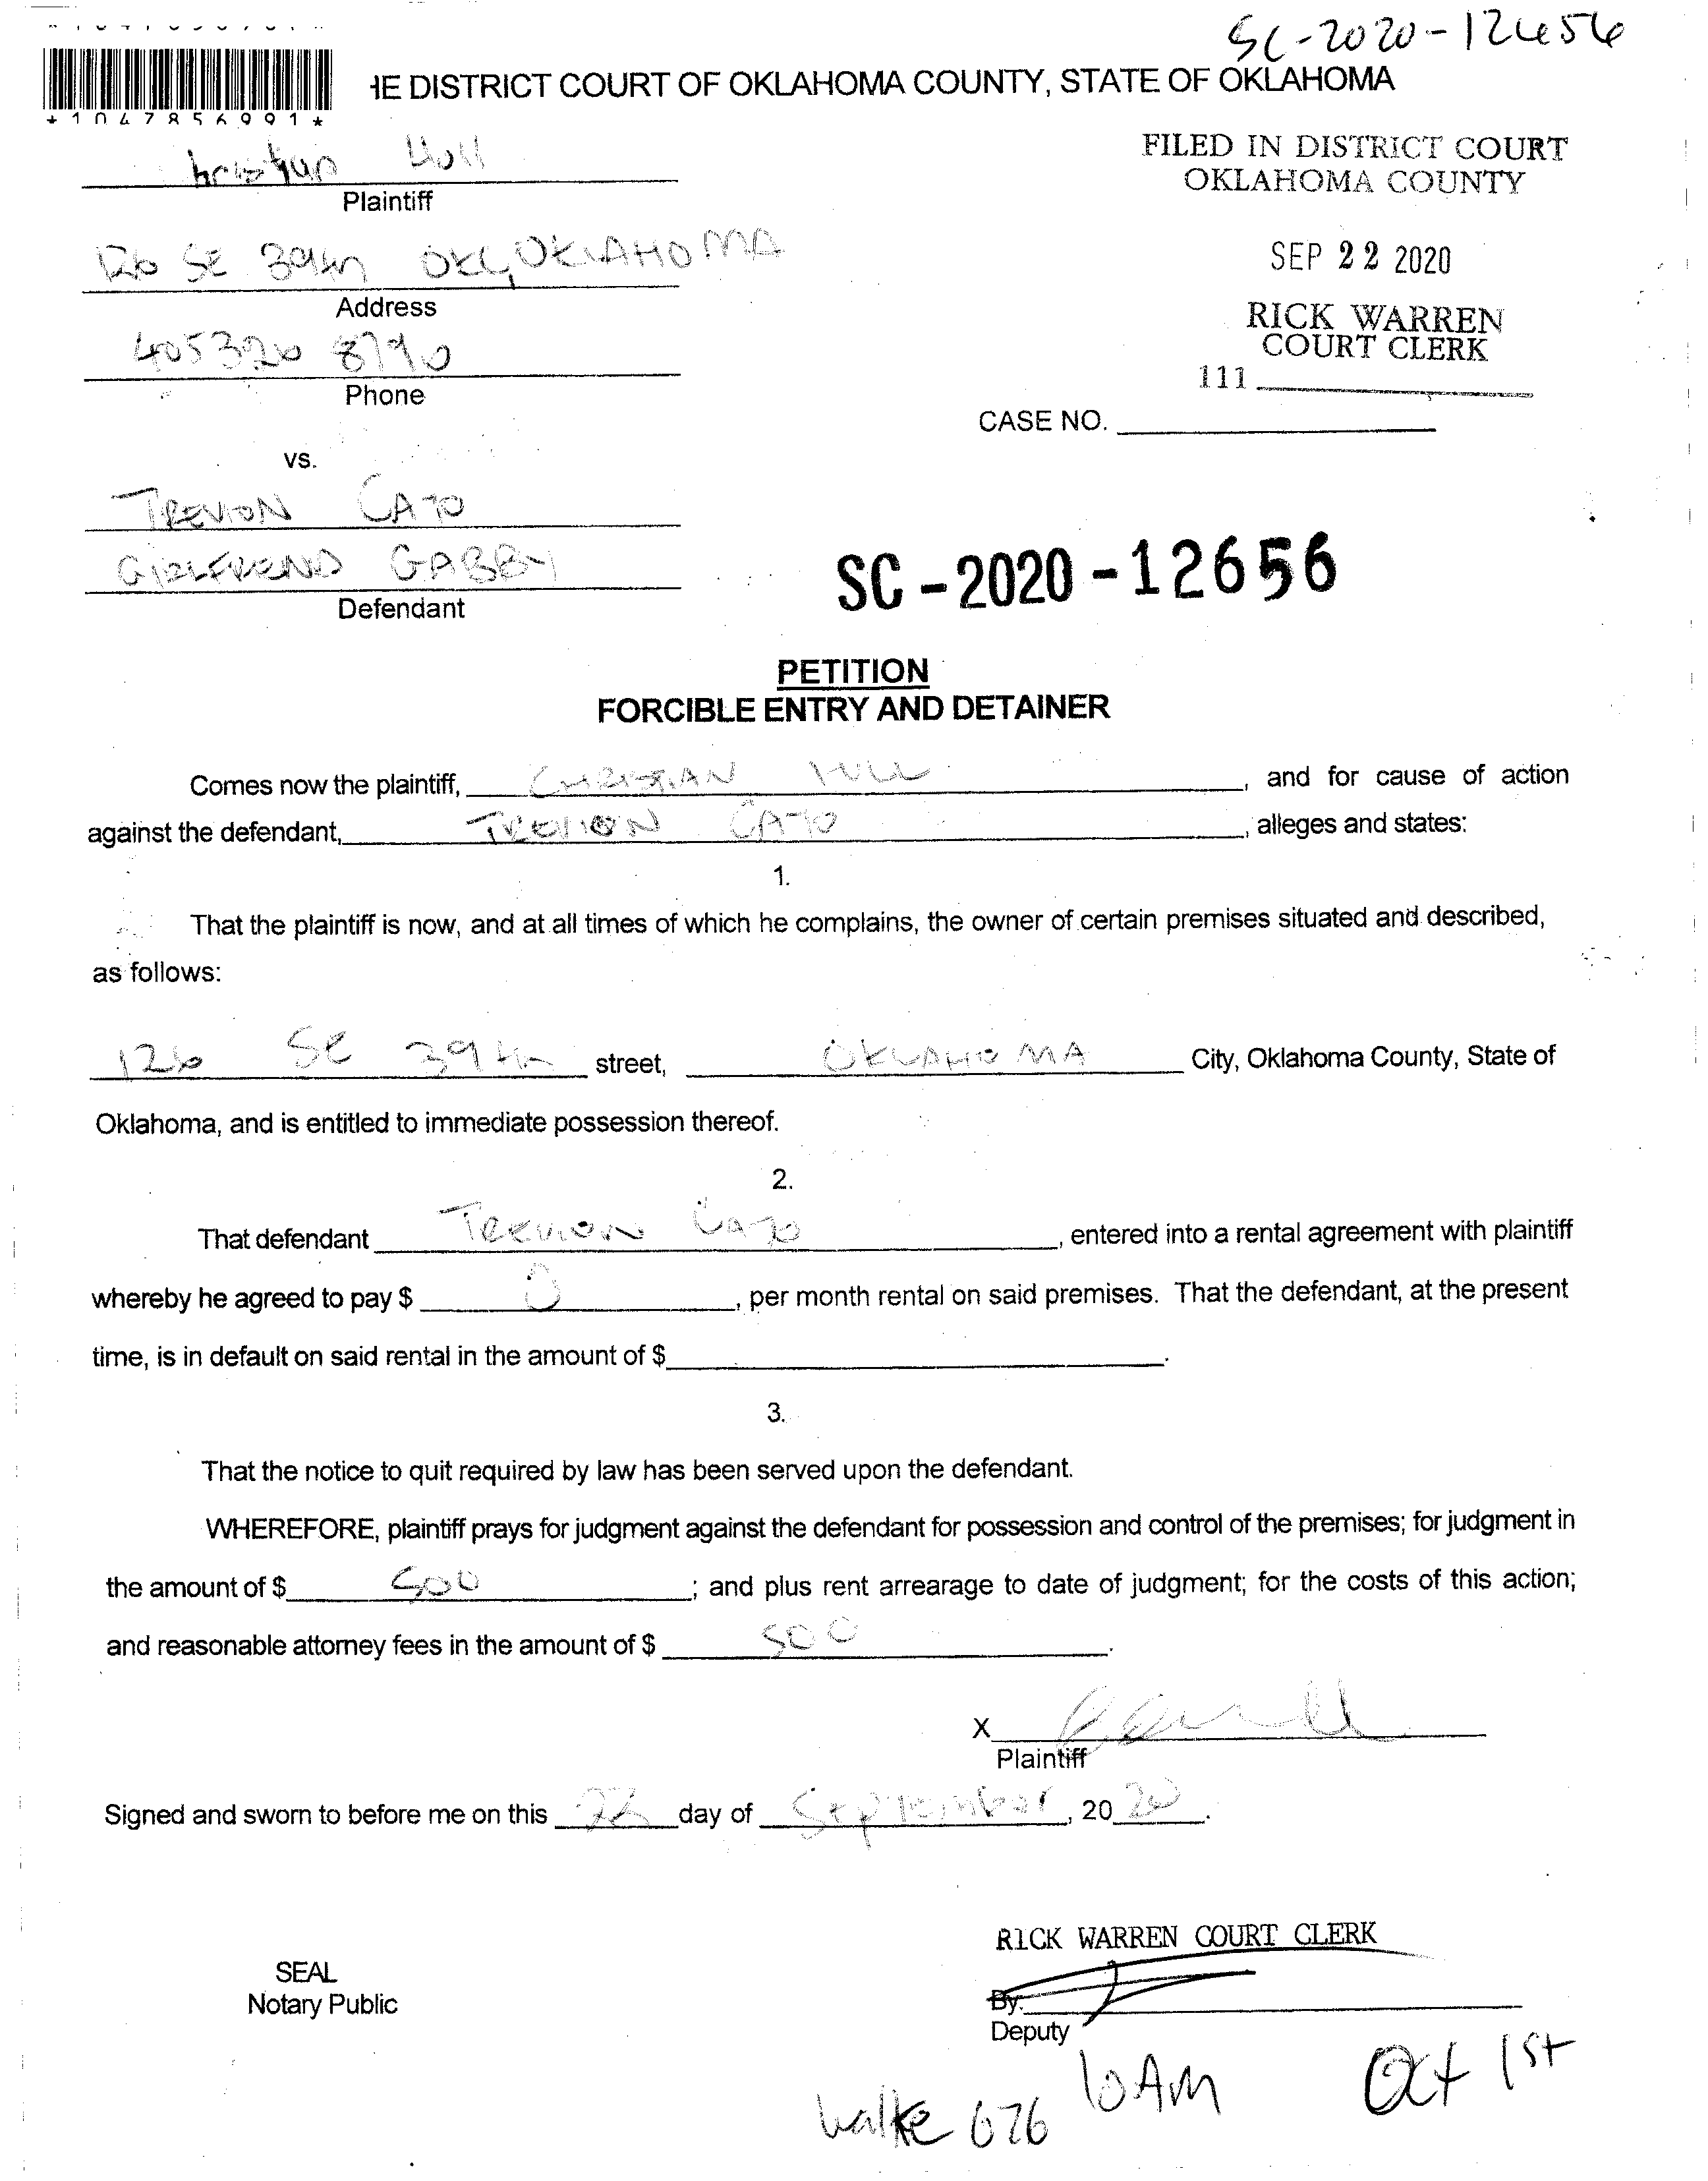 SC-2020-12656
HE DISTRICT COURT OF OKLAHOMA COUNTY, STATE OF OKLAHOMA
*1047856991*
FILED IN DISTRICT COURT
OKLAHOMA COUNTY
Hull
Plaintiff
126 SE 39th OKC, OKLAHOMA
SEP 22 2020
Address
RICK WARREN
COURT CLERK
405 326 8790
111
Phone
CASE NO.
vs.
TREVION CATO
GIRLFREND GABBY
Defendant
SC-2020-12656
PETITION
FORCIBLE ENTRY AND DETAINER
Comes now the plaintiff, CHRISTIAN HULL, and for cause of action
against the defendant, TREVION CATO, alleges and states:
1.
That the plaintiff is now, and at all times of which he complains, the owner of certain premises situated and described,
as follows:
126 SE 39th street, OKLAHOMA City, Oklahoma County, State of
Oklahoma, and is entitled to immediate possession thereof.
2.
That defendant TREVION CATO, entered into a rental agreement with plaintiff
whereby he agreed to pay $ 0, per month rental on said premises. That the defendant, at the present
time, is in default on said rental in the amount of $.
3.
That the notice to quit required by law has been served upon the defendant.
WHEREFORE, plaintiff prays for judgment against the defendant for possession and control of the premises; for judgment in
the amount of $ 500; and plus rent arrearage to date of judgment; for the costs of this action;
and reasonable attorney fees in the amount of $ 500.
X
Plaintiff
Signed and sworn to before me on this 22 day of September, 2020.
RICK WARREN COURT CLERK
SEAL
Notary Public
By:
Deputy
10AM Oct 1st
Walke 676